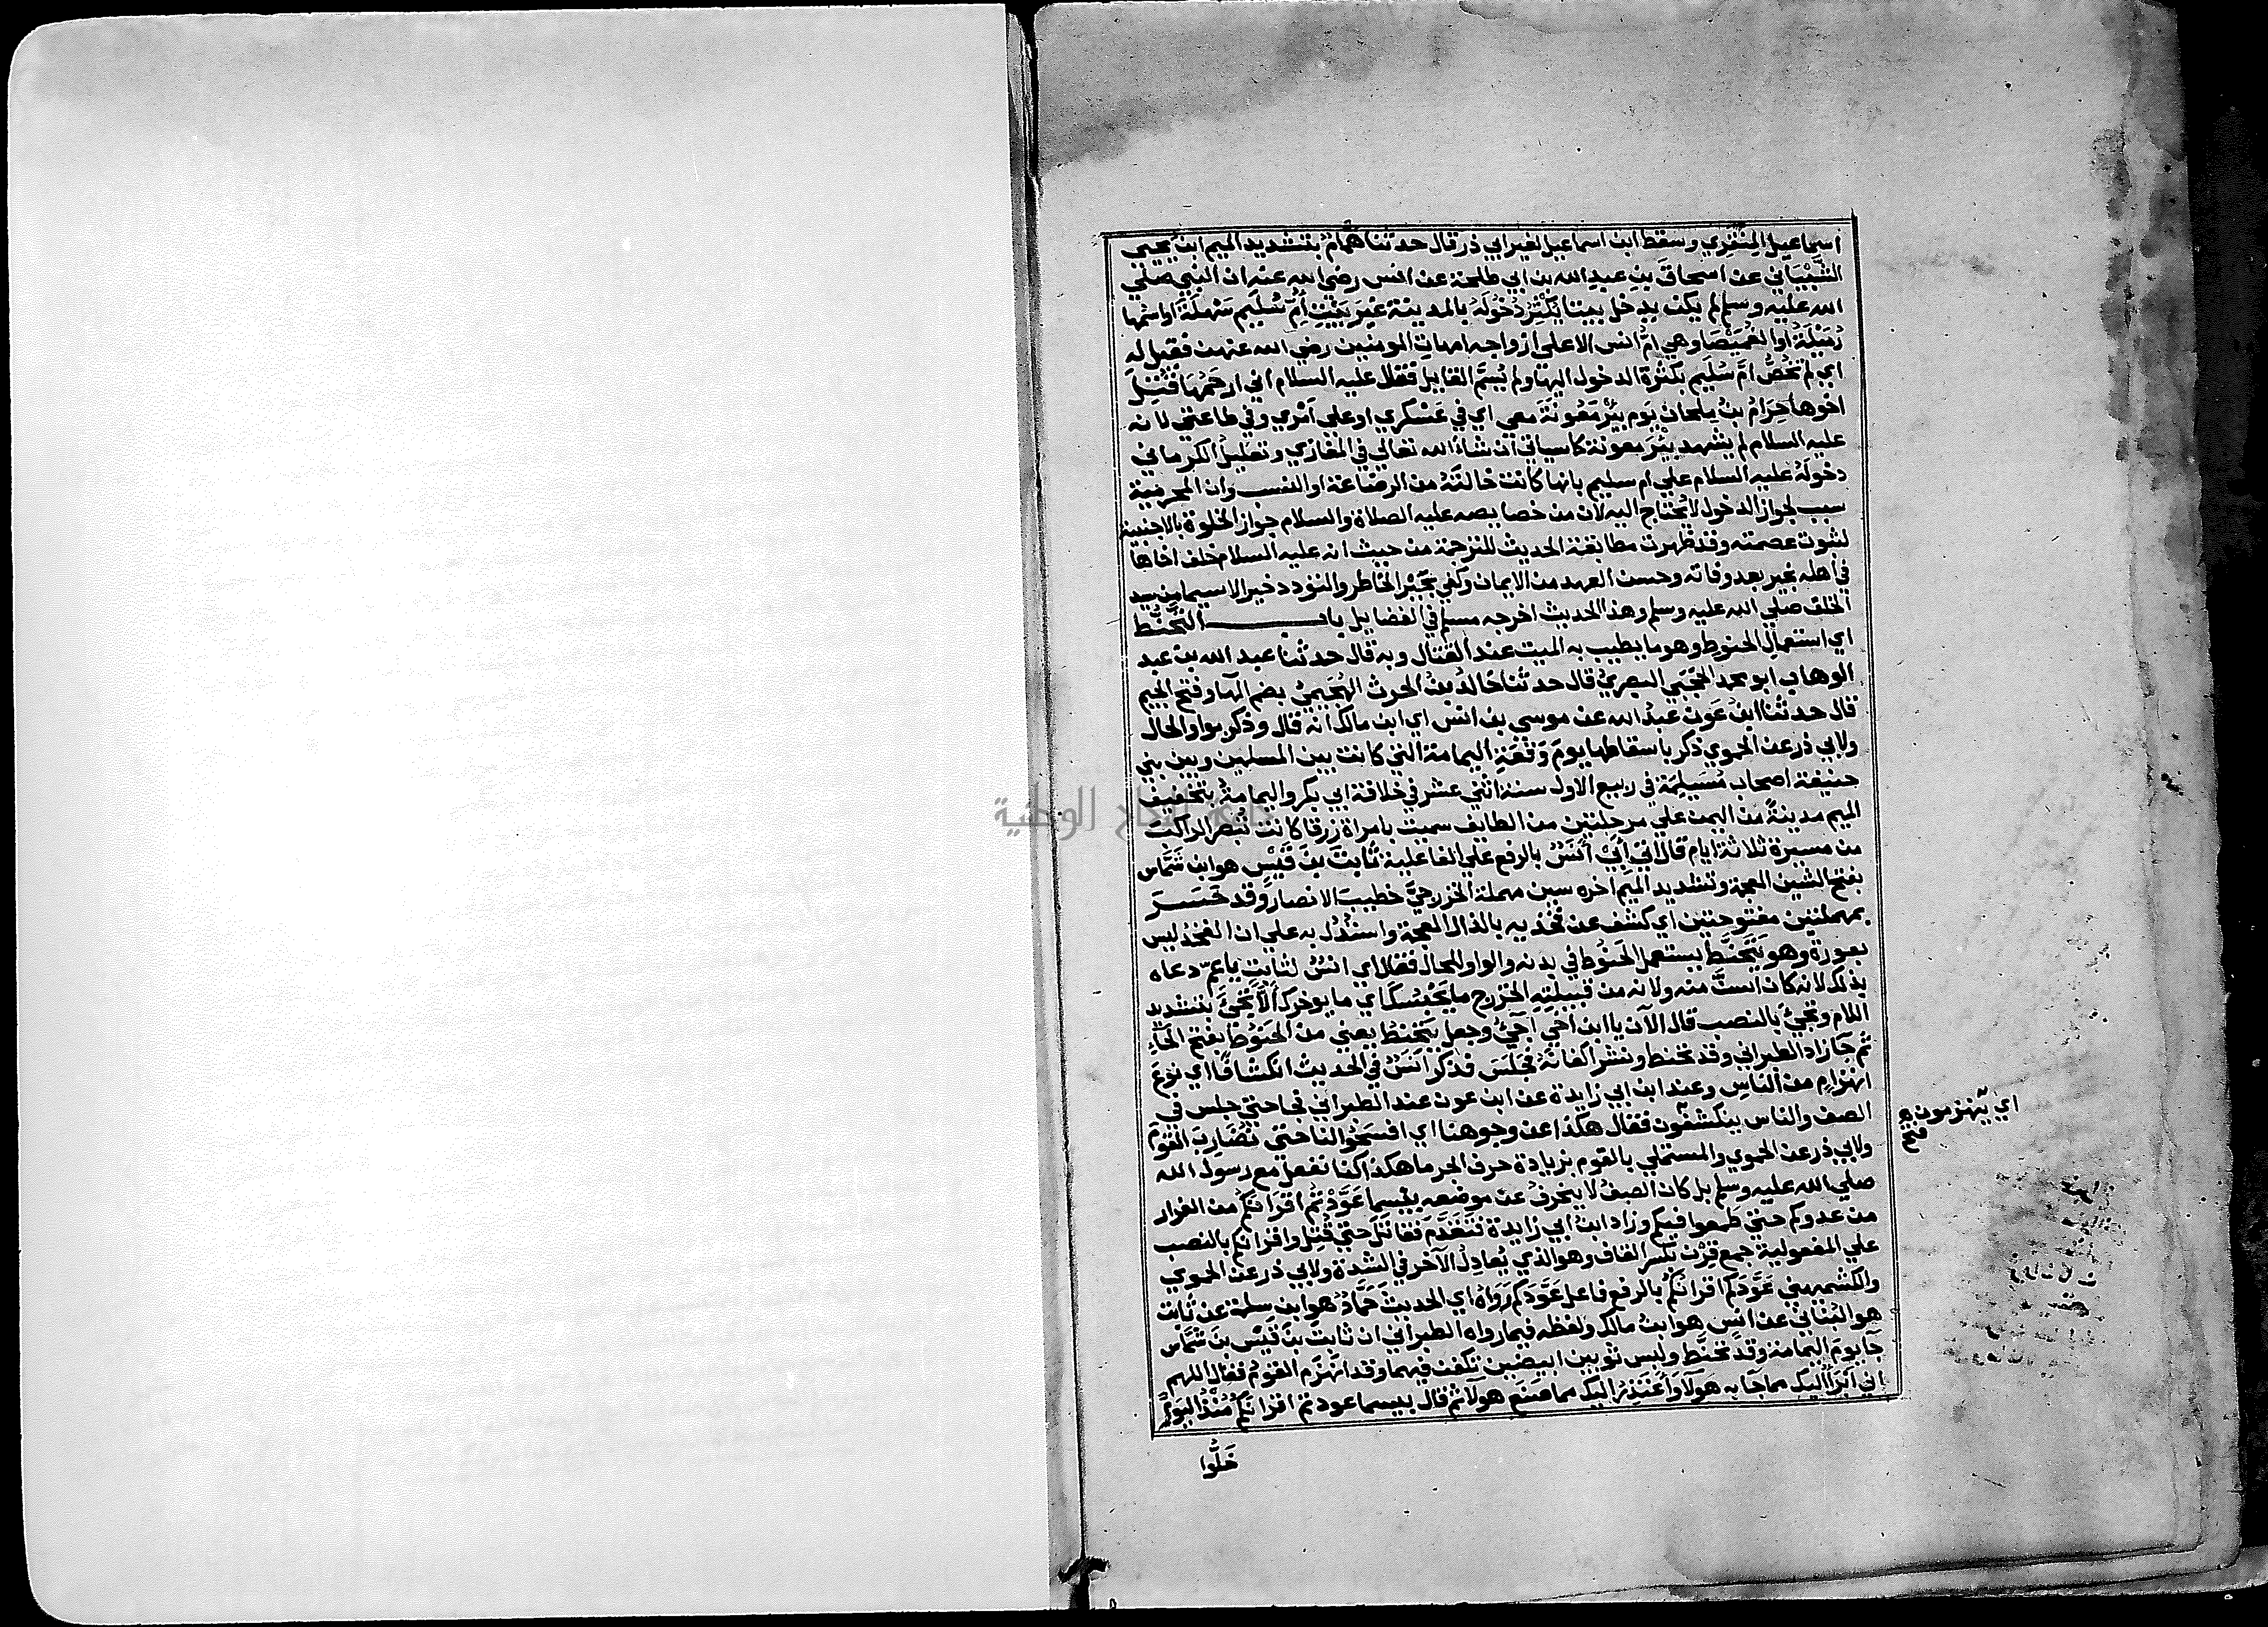 اسماعيل المنقري وسقط ابن اسماعيل لغير ابي ذر قال حدثنا همام بتشديد الميم ابن يحيى
الشيباني عن اسحاق بن عبد الله بن ابي طلحة عن انس رضي الله عنه ان النبي صلى
الله عليه وسلم لم يكن يدخل بيتا يكثر دخوله بالمدينة غير بيت ام سليم سهلة او اسمها
رميلة او الغميصا وهي ام انس الا على ازواجه امهات المومنين رضي الله عنهن فقيل له
اي لم تخص ام سليم بكثرة الدخول اليها ولم يسم القايل فقال عليه السلام اني ارحمها قتل
اخوها حرام بن ملحان يوم بير معونة معي اي في عسكري او على امري وفي طاعتي لانه
عليه السلام لم يشهد بئر معونة كاسياتي ان شاء الله تعالى في المغازي وتعليل الكرماني
دخوله عليه السلام على ام سليم بانها كانت خالته من الرضاعة او النسب وان المحرمية
سبب لجواز الدخول لا يحتاج اليه لان من خصايصه عليه الصلاة والسلام جواز الخلوة بالاجنبية
لثبوت عصمته وقد ظهرت مطابقة الحديث للترجمة من حيث انه عليه السلام خلف اخاها
في اهله بخير بعد وفاته وحسن العهد من الايمان وكفى بجبر الخاطر والتودد خير الاسيما من سيد
الخلق صلى الله عليه وسلم وهذا الحديث اخرجه مسلم في الفضايل باب التحنط
اي استعمال الحنوط وهو ما يطيب به الميت عند القتال وبه قال حدثنا عبد الله بن عبد
الوهاب ابو محمد الحجبي البصري قال حدثنا خالد بن الحرث الهجيمي بضم الها وفتح الجيم
قال حدثنا ابن عون عبد الله عن موسى بن انس اي ابن مالك انه قال وذكر بواو الحال
ولابي ذر عن الحموي ذكر باسقاطها يوم وقعة اليمامة التي كانت بين المسلمين وبين بني
حنيفة اصحاب مسيلمة في ربيع الاول سنة اثني عشر في خلافة ابي بكر واليمامة بتخفيف
الميم مدينة من اليمن على مرحلتين من الطايف سميت بامراة زرقا كانت تبصر الراكب
من مسيرة ثلاثة ايام قال اتى ابي انس بالرفع على الفاعلية ثابت بن قيس هو ابن شماس
بفتح الشين المعجمة وتشديد الميم اخره سين مهملة الخزرجي خطيب الانصار وقد حسر
بمهملتين مفتوحتين اي كشف عن فخذيه بالذال المعجمة واستدل به على ان الفخذ ليس
بعورة وهو يتحنط يستعمل الحنوط في بدنه والواو للحال فقال اي انس لثابت يا عم دعاه
بذلك لانه كان اسن منه ولانه من قبيلته الخزرج ما يحبسك اي ما يوخرك الا تجئ بتشديد
اللام وتجئ بالنصب قال الان يا ابن اخي اجئ وجعل يتحنط يعني من الحنوط بفتح الحاء
ثم جا زاد الطبراني وقد تحنط ونشر اكفانه فجلس فذكر انس في الحديث انكشافا اي نوع
انهزام من الناس وعند ابن ابي زايدة عن ابن عون عند الطبراني فجا حتى جلس في
الصف والناس ينكشفون فقال هكذا عن وجوهنا اي افسحوا لنا حتى نضارب القوم
ولابي ذر عن الحموي والمستملي بالقوم بزيادة حرف الجر ما هكذا كنا نفعل مع رسول الله
صلى الله عليه وسلم بل كان الصف لا ينحرف عن موضعه بيسما عودتم اقرانكم من الفرار
من عدوكم حتى طمعوا فيكم وزاد ابن ابي زايدة فتقدم فقاتل حتى قتل واقرانكم بالنصب
على المفعولية جمع قرن بكسر القاف وهو الذي يعادل الآخر في الشدة ولابي ذر عن الحموي
والكشميهني عودكم اقرانكم بالرفع فاعل عودكم رواه اي الحديث حماد هو ابن سلمة عن ثابت
هو البناني عن انس هو ابن مالك ولفظه فيما رواه الطبراني ان ثابت بن قيس بن شماس
جا يوم اليمامة وقد تحنط ولبس ثوبين ابيضين تكفن فيهما وقد انهزم القوم فقال اللهم
اني ابرأ اليك مما جا به هولا واعتذر اليك مما صنع هولا ثم قال بيسما عودتم اقرانكم منذ اليوم
خلوا
اي ينهزمون
فتح